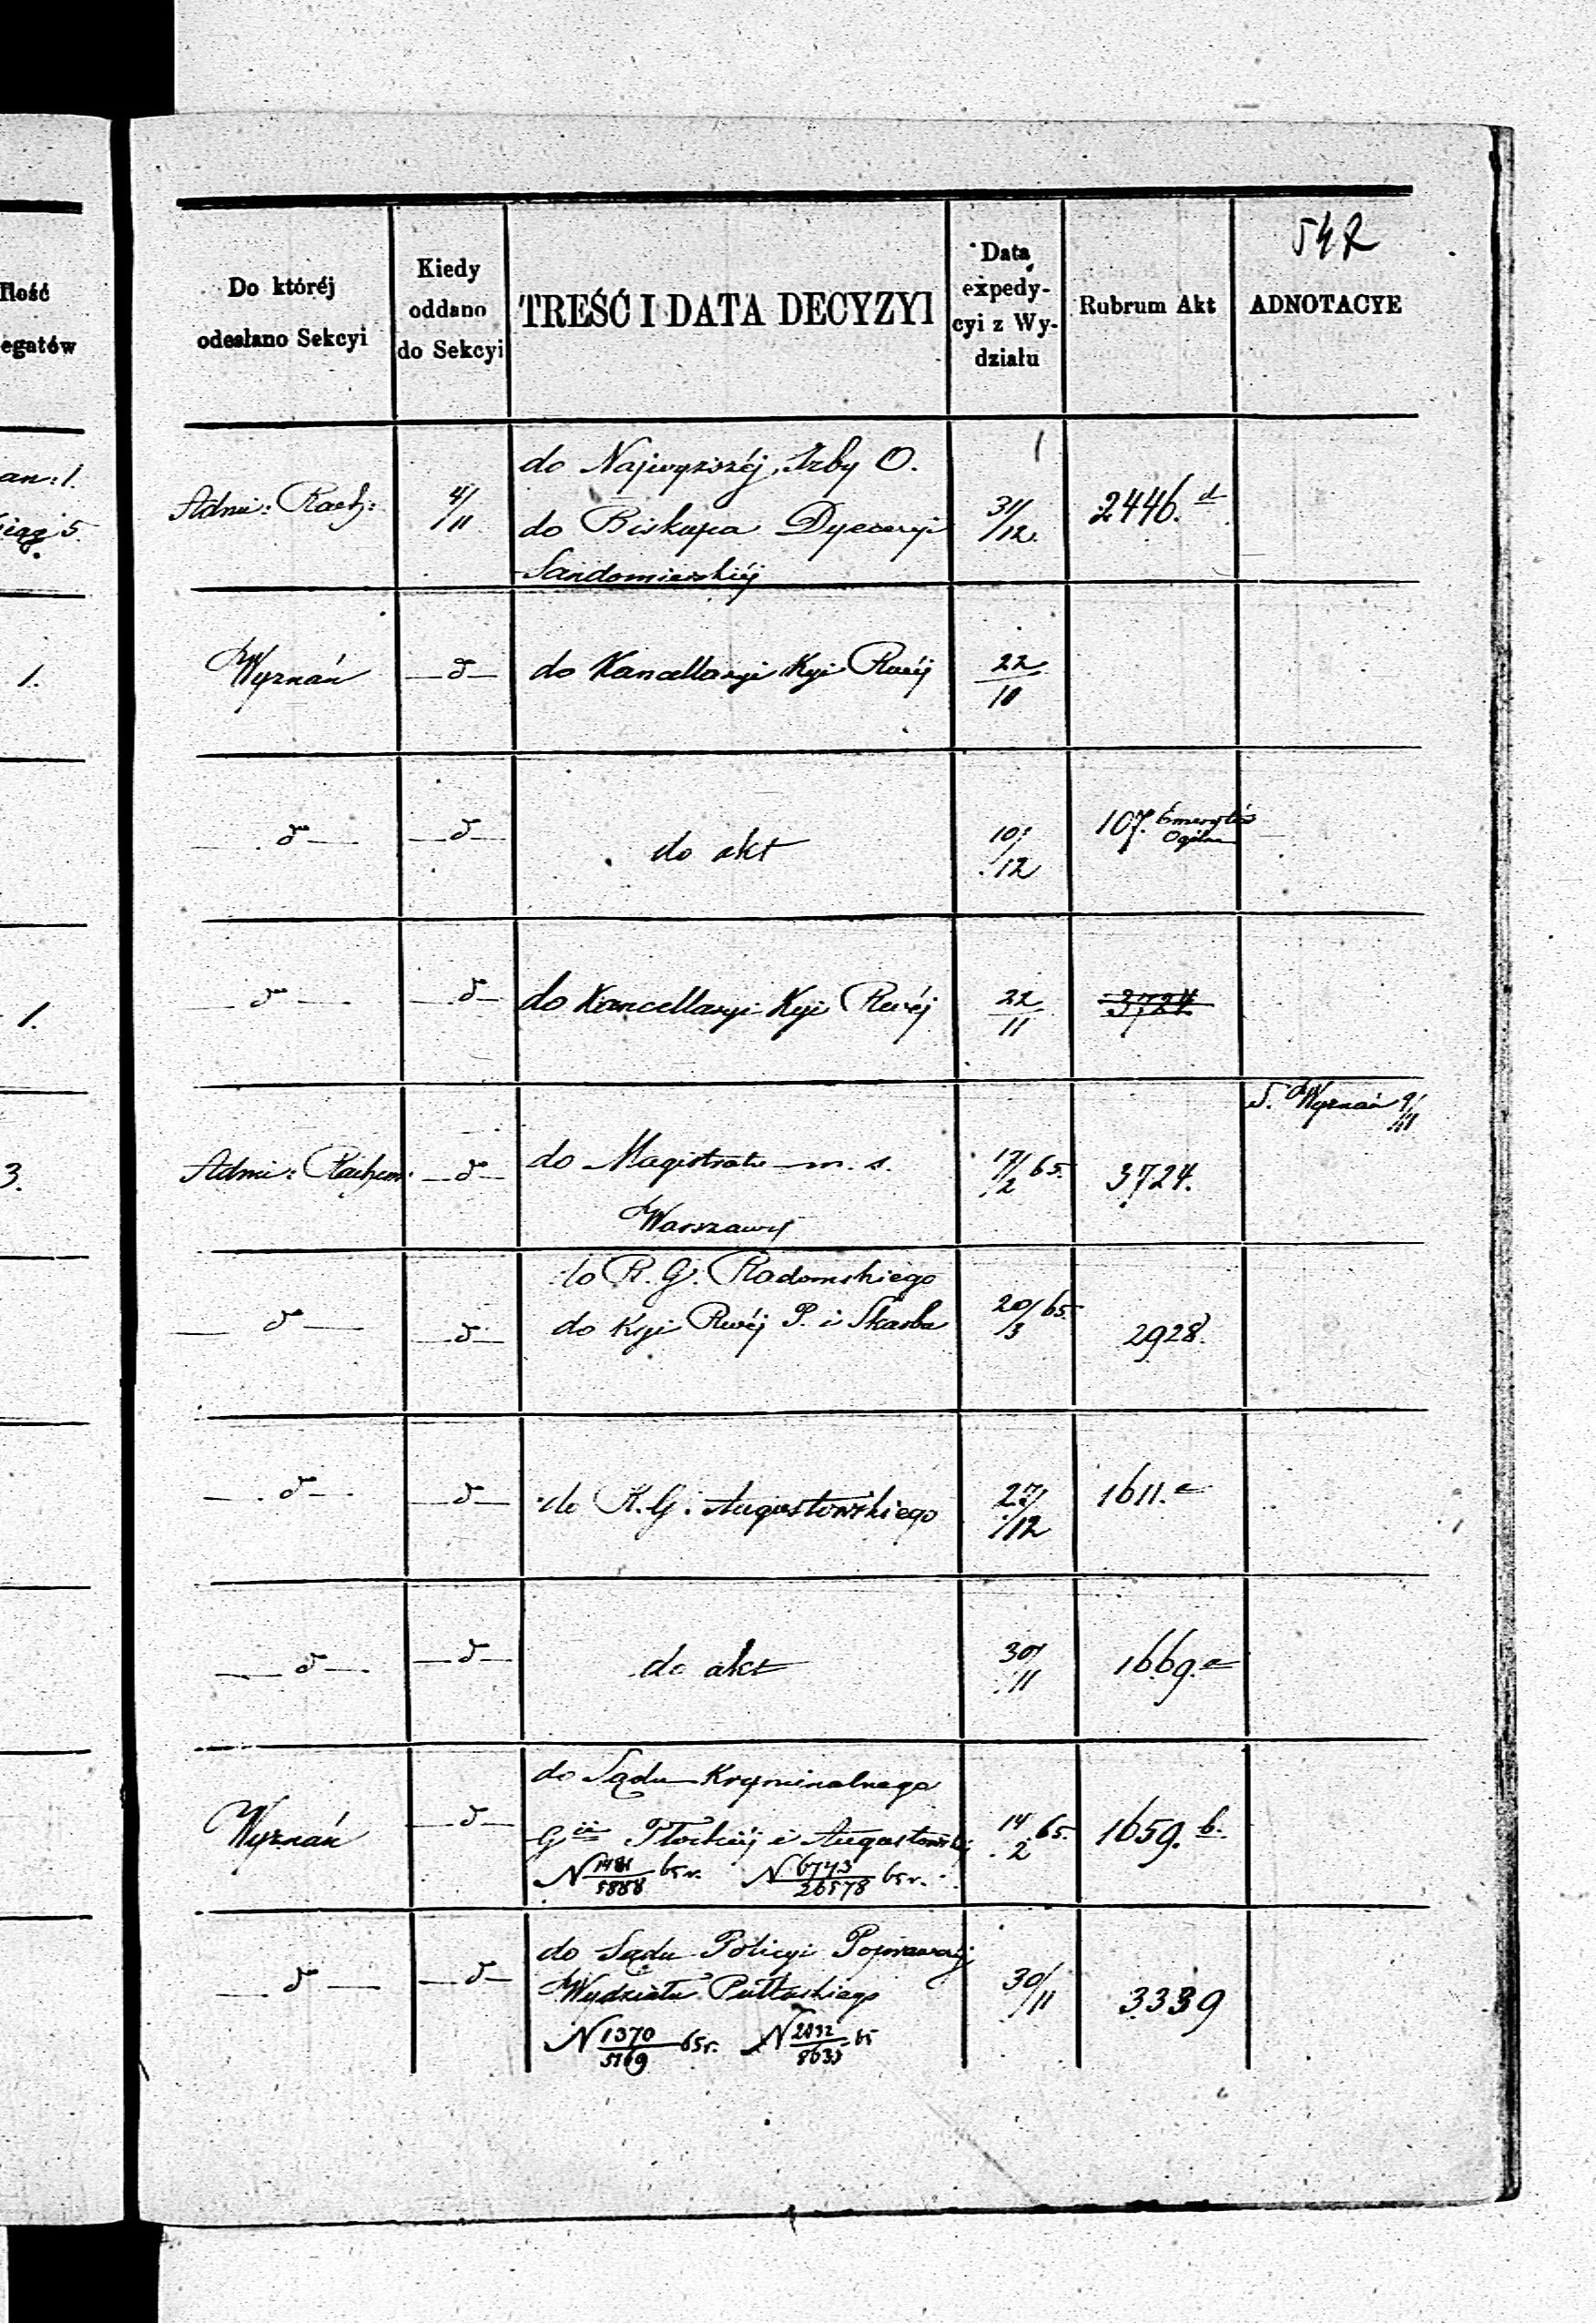 542
Ilość
egatów
Do któréj
odesłano Sekcyi
Kiedy
oddano
do Sekcyi
TREŚĆ I DATA DECYZYI
Data
expedy-
cyi z Wy-
działu
Rubrum Akt
ADNOTACYE
an: 1.
5.
Admi: Rach:
4/11
do Najwyższéj Izby O.
do Biskupa Dyecezyi
Sandomierskiéj
31/12.
2446. d
1.
Wyznań
—d—
do Kancellaryi Kyi Rwéj
22/10
—d—
—d—
do akt
10/12
107. Emerytów
Ogólne
1.
—d—
—d—
do Kancellaryi Kyi Rwéj
22/11
3724.
S. Wyznań 9/11
3.
Admi: Rachun:
—d—
do Magistratu m. s.
Warszawy
17/2 65.
3724.
—d—
—d—
do R. G. Radomskiego
do Kyi Rwéj P. i Skarbu
20/3 65.
2928.
—d—
—d—
do R. G. Augustowskiego
27/12
1611. a
—d—
—d—
do akt
30/11
1669. a
Wyznań
—d—
do Sądu Kryminalnego
Gii Płockiéj i Augustowskiéj
N 1481/5888 65 r. N 6743/26578 65 r.
14/2 65.
1659. b.
—d—
—d—
do Sądu Policyi Poprawczéj
Wydziału Pułtuskiego
N 1370/5169 65 r. N 2032/8633 65
30/11
3339